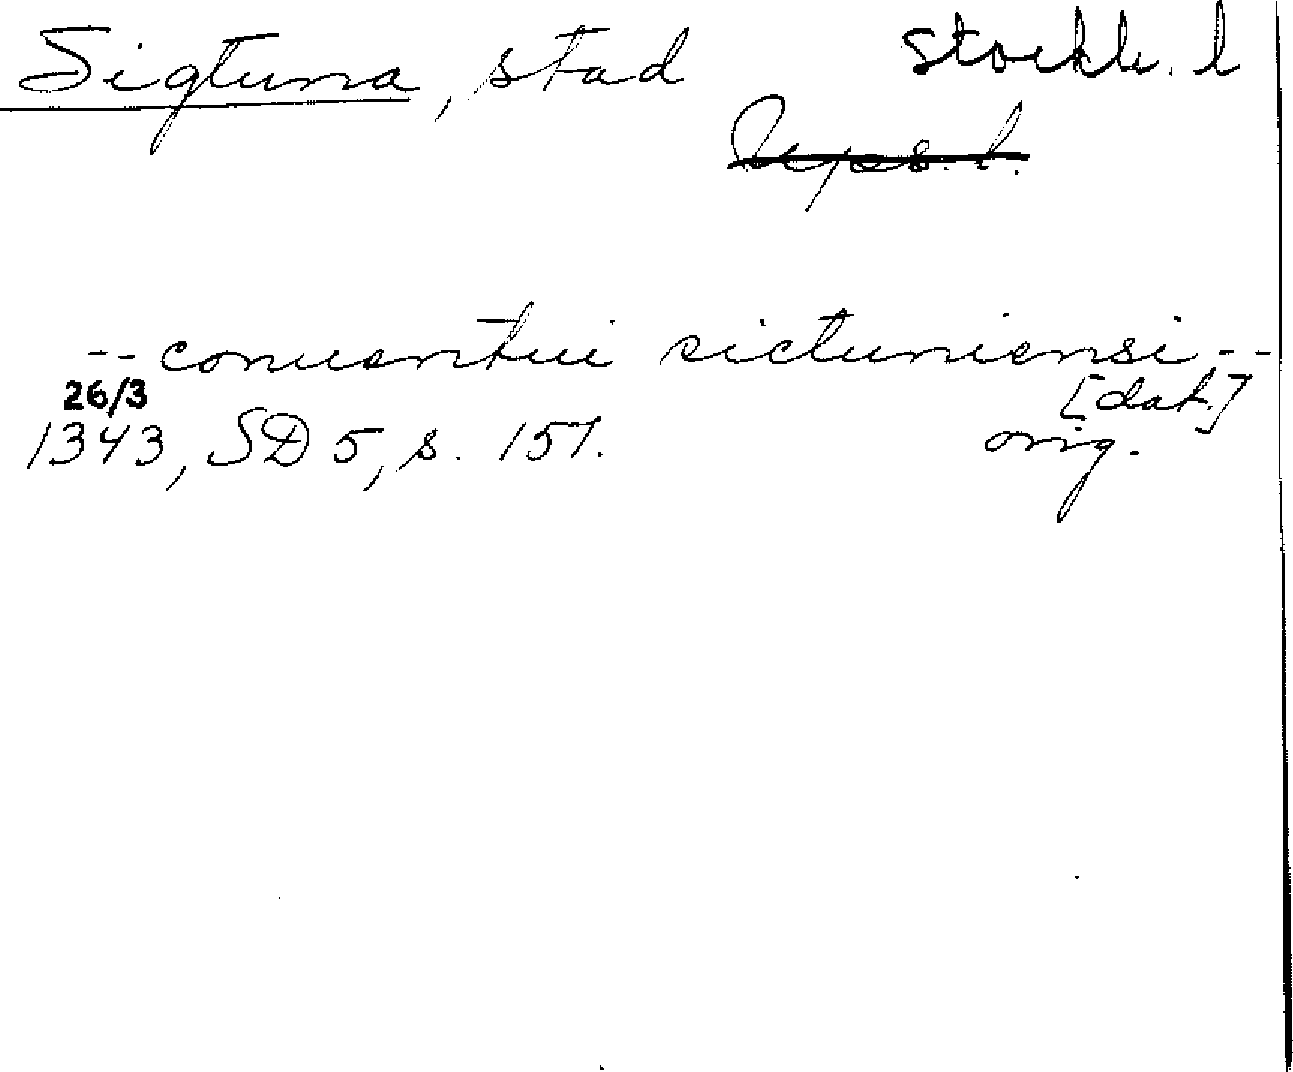 Sigtuna, stad Stockh. l
Upps. l.
-- conuentui sictuniensi --
26/3 [dat.]
1343, SD 5, s. 151. orig.